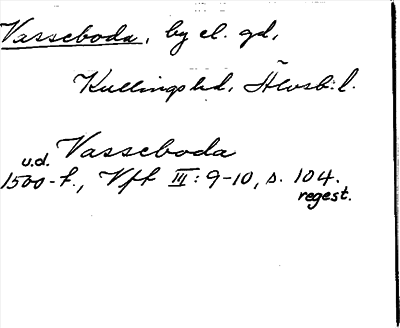 Vasseboda, by el. gd,
Kullings hd, Älvsb:l.
Vasseboda
u.d.
1500-t., Vff III: 9-10, s. 104.
regest.